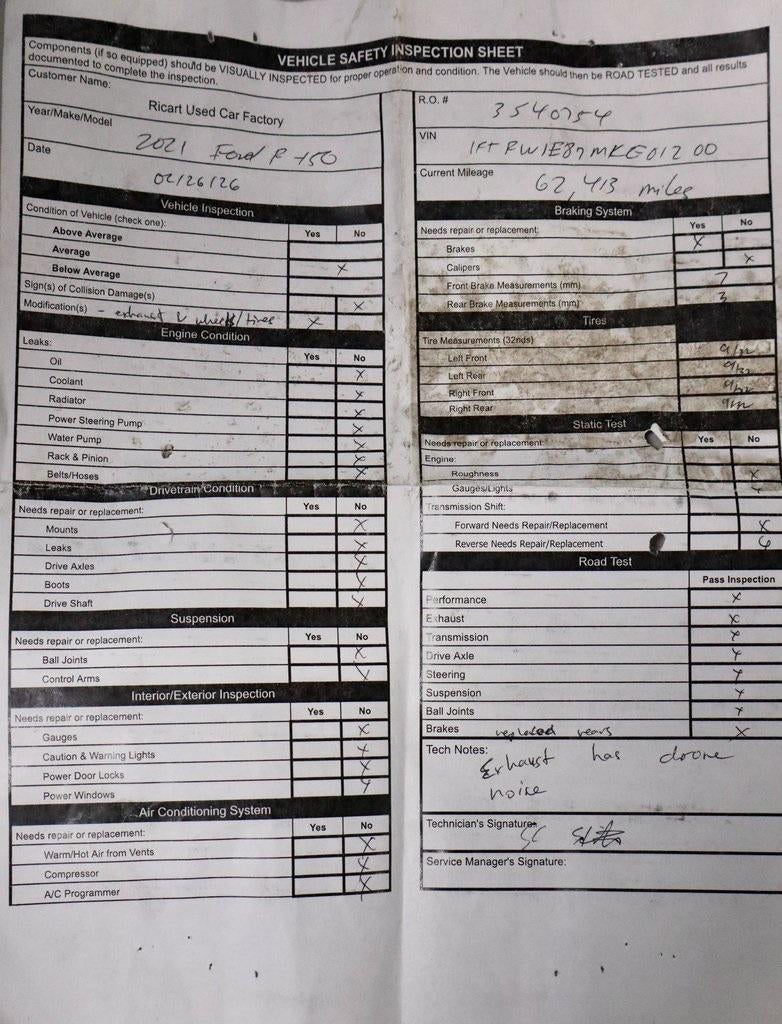 VEHICLE SAFETY INSPECTION SHEET
Components (if so equipped) should be VISUALLY INSPECTED for proper operation and condition. The Vehicle should then be ROAD TESTED and all results
documented to complete the inspection.
Customer Name:
Ricart Used Car Factory
Year/Make/Model
2021 Ford F-150
Date
02/26/26
Vehicle Inspection
Condition of Vehicle (check one): Yes No
Above Average
Average
Below Average X
Sign(s) of Collision Damage(s) X
Modification(s) - exhaust & wheels/tires X
Engine Condition
Leaks: Yes No
Oil X
Coolant X
Radiator X
Power Steering Pump X
Water Pump X
Rack & Pinion X
Belts/Hoses X
Drivetrain Condition
Needs repair or replacement: Yes No
Mounts X
Leaks X
Drive Axles X
Boots X
Drive Shaft X
Suspension
Needs repair or replacement: Yes No
Ball Joints X
Control Arms X
Interior/Exterior Inspection
Needs repair or replacement: Yes No
Gauges X
Caution & Warning Lights X
Power Door Locks X
Power Windows X
Air Conditioning System
Needs repair or replacement: Yes No
Warm/Hot Air from Vents X
Compressor X
A/C Programmer X
R.O. #
3540754
VIN
1FTFW1E87MKE01200
Current Mileage
62,413 miles
Braking System
Needs repair or replacement: Yes No
Brakes X
Calipers X
Front Brake Measurements (mm) 7
Rear Brake Measurements (mm) 3
Tires
Tire Measurements (32nds)
Left Front 9/32
Left Rear 9/32
Right Front 9/32
Right Rear 9/32
Static Test
Needs repair or replacement: Yes No
Engine:
Roughness X
Gauges/Lights X
Transmission Shift:
Forward Needs Repair/Replacement X
Reverse Needs Repair/Replacement X
Road Test
Pass Inspection
Performance X
Exhaust X
Transmission X
Drive Axle X
Steering X
Suspension X
Ball Joints X
Brakes replaced rears X
Tech Notes:
Exhaust has drone
noise
Technician's Signature:
Service Manager's Signature: